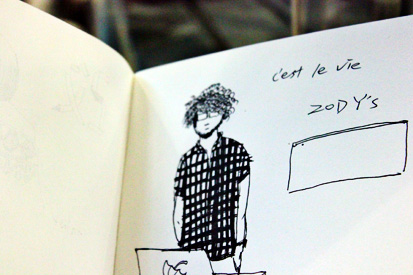 c'est le vie
ZODY'S